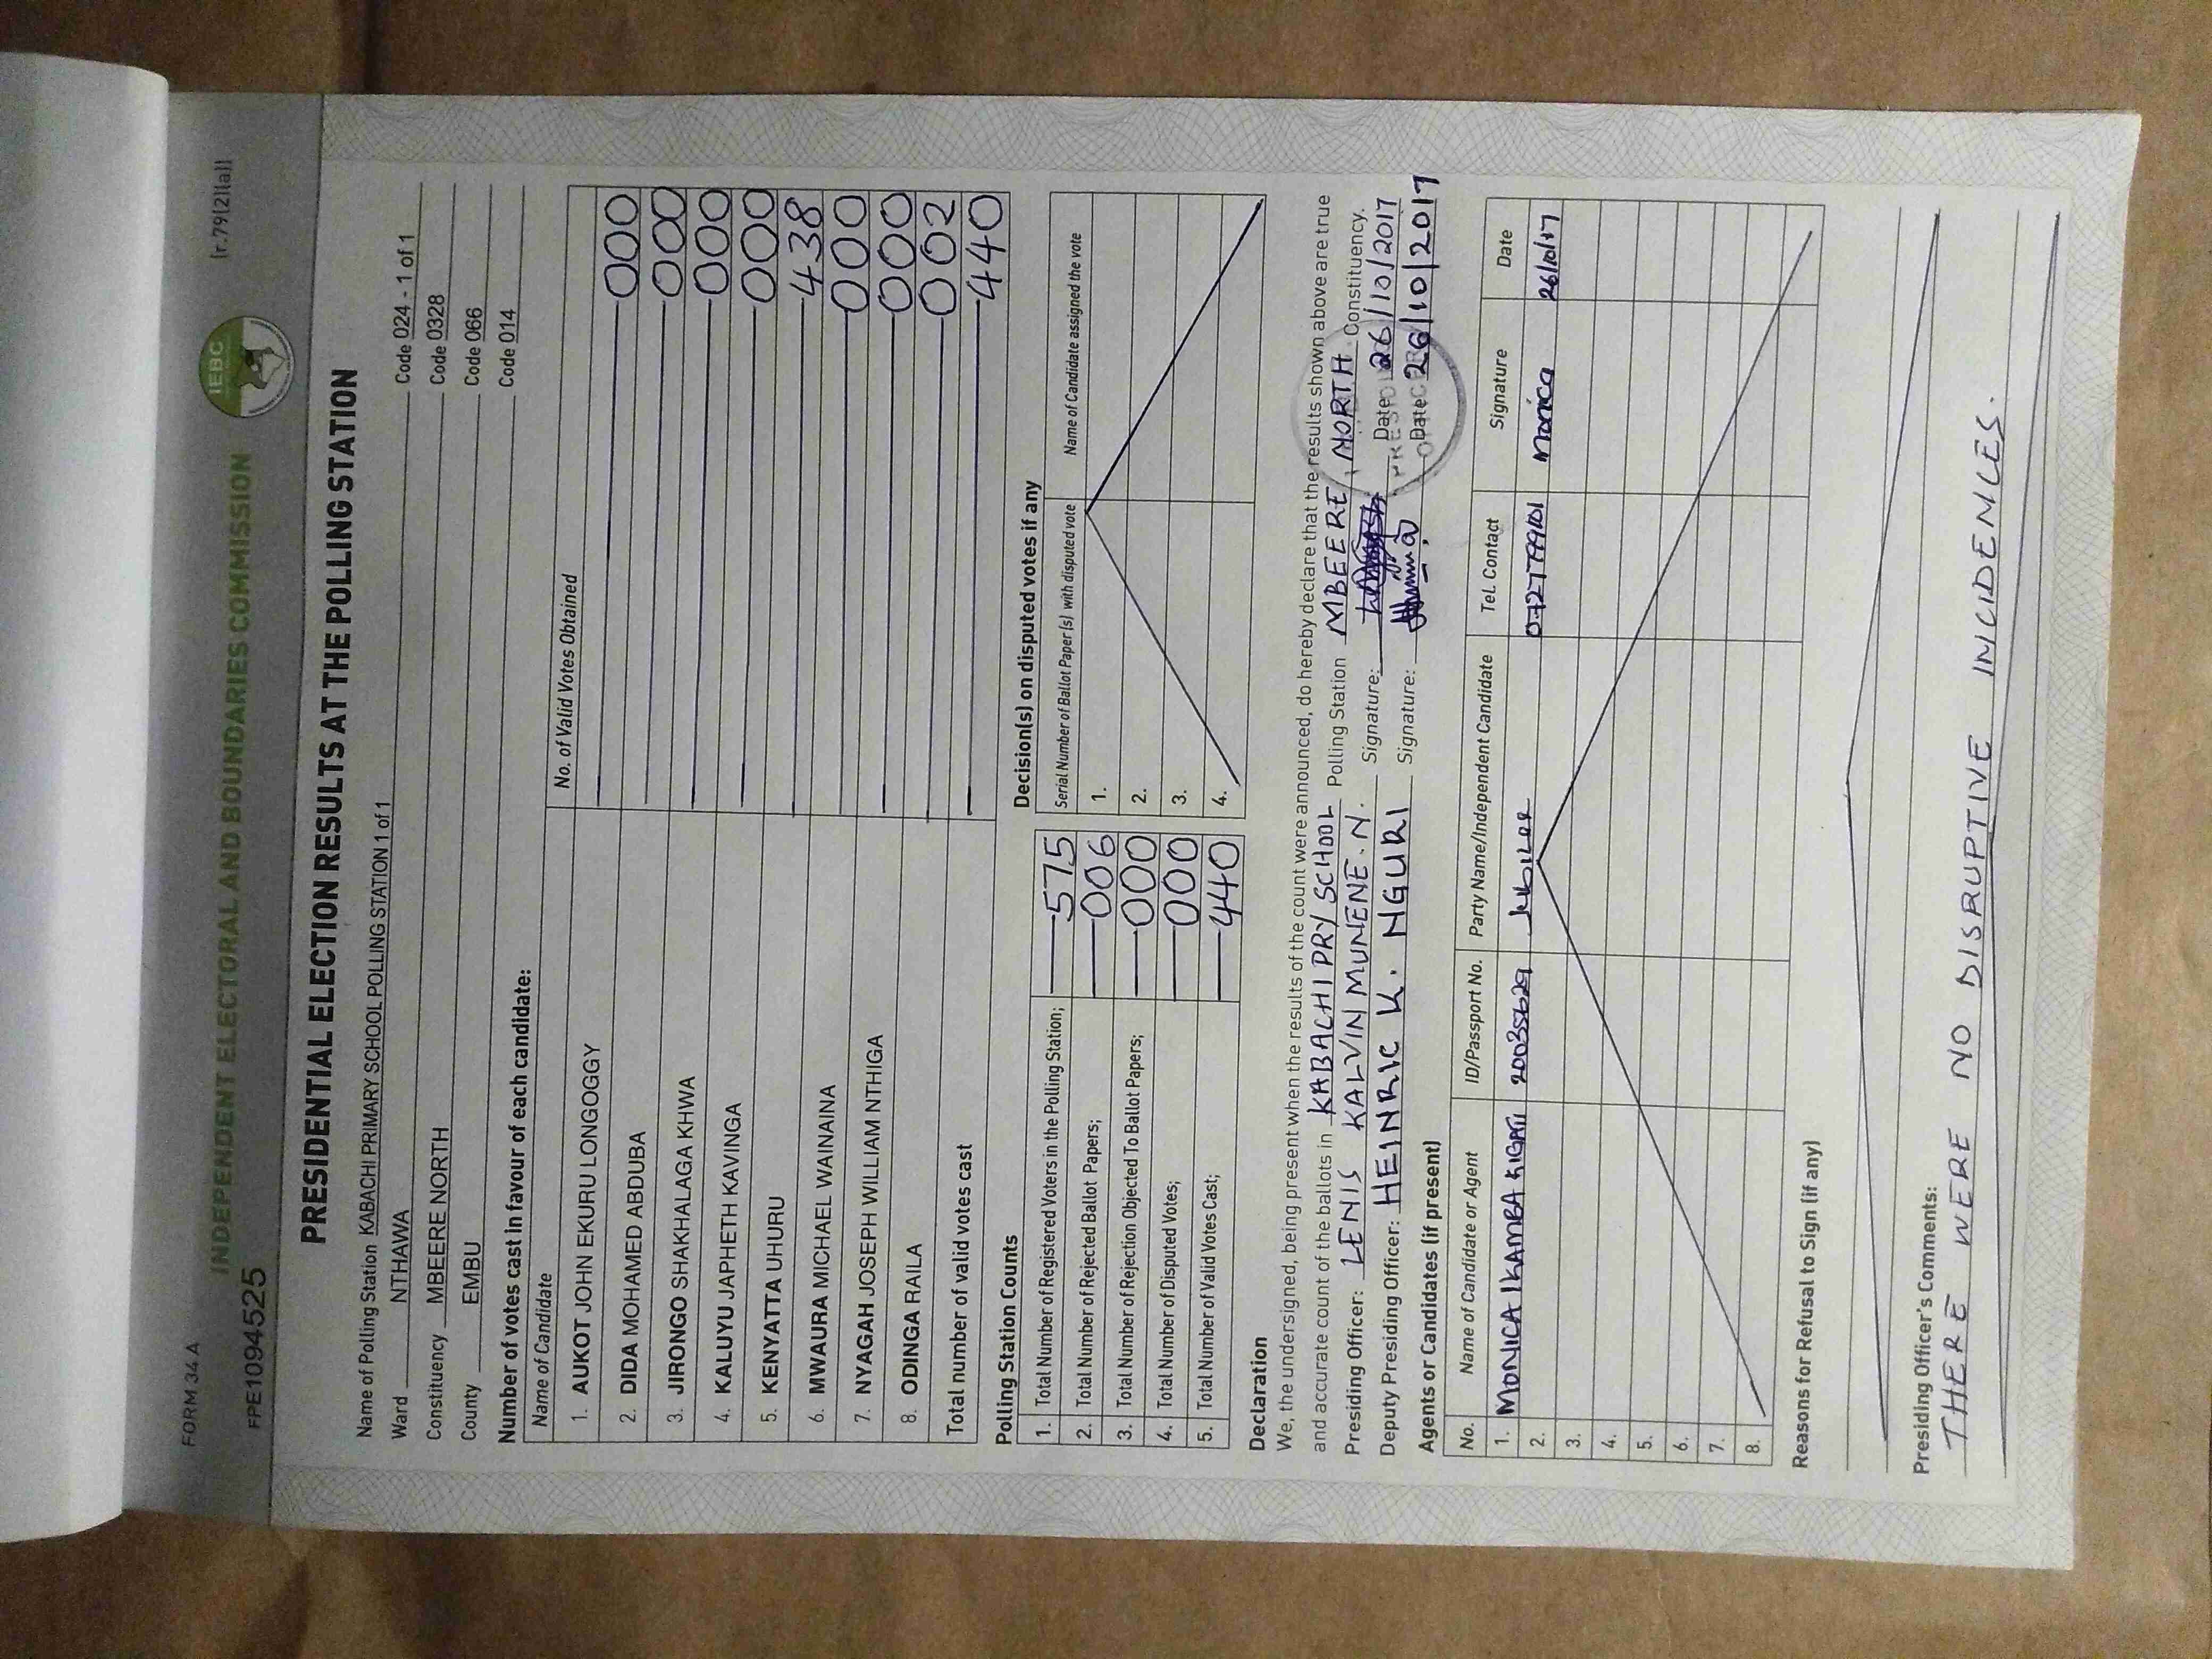 FORM 34 A
[r.79(2)(a)]
INDEPENDENT ELECTORAL AND BOUNDARIES COMMISSION
IEBC
FPE1094525
PRESIDENTIAL ELECTION RESULTS AT THE POLLING STATION
Name of Polling Station KABACHI PRIMARY SCHOOL POLLING STATION 1 of 1 Code 024 - 1 of 1
Ward NTHAWA Code 0328
Constituency MBEERE NORTH Code 066
County EMBU Code 014
Number of votes cast in favour of each candidate:
Name of Candidate No. of Valid Votes Obtained
1. AUKOT JOHN EKURU LONGOGGY 000
2. DIDA MOHAMED ABDUBA 000
3. JIRONGO SHAKHALAGA KHWA 000
4. KALUYU JAPHETH KAVINGA 000
5. KENYATTA UHURU 438
6. MWAURA MICHAEL WAINAINA 000
7. NYAGAH JOSEPH WILLIAM NTHIGA 000
8. ODINGA RAILA 002
Total number of valid votes cast 440
Polling Station Counts
1. Total Number of Registered Voters in the Polling Station; 575
2. Total Number of Rejected Ballot Papers; 006
3. Total Number of Rejection Objected To Ballot Papers; 000
4. Total Number of Disputed Votes; 000
5. Total Number of Valid Votes Cast; 440
Decision(s) on disputed votes if any
Serial Number of Ballot Paper(s) with disputed vote Name of Candidate assigned the vote
1.
2.
3.
4.
Declaration
We, the undersigned, being present when the results of the count were announced, do hereby declare that the results shown above are true
and accurate count of the ballots in KABACHI PRY SCHOOL Polling Station MBEERE NORTH Constituency.
Presiding Officer: LENIS KALVIN MUNENE. N. Signature: Date 26/10/2017
Deputy Presiding Officer: HEINRIC K. NGURI Signature: Date 26/10/2017
PRESIDING OFFICER
Agents or Candidates (if present)
No. Name of Candidate or Agent ID/Passport No. Party Name/Independent Candidate Tel. Contact Signature Date
1. MONICA IKAMBA 20035629 Jubilee Monica 26/10/17
2.
3.
4.
5.
6.
7.
8.
Reasons for Refusal to Sign (if any)
Presiding Officer's Comments:
THERE WERE NO DISRUPTIVE INCIDENCES.